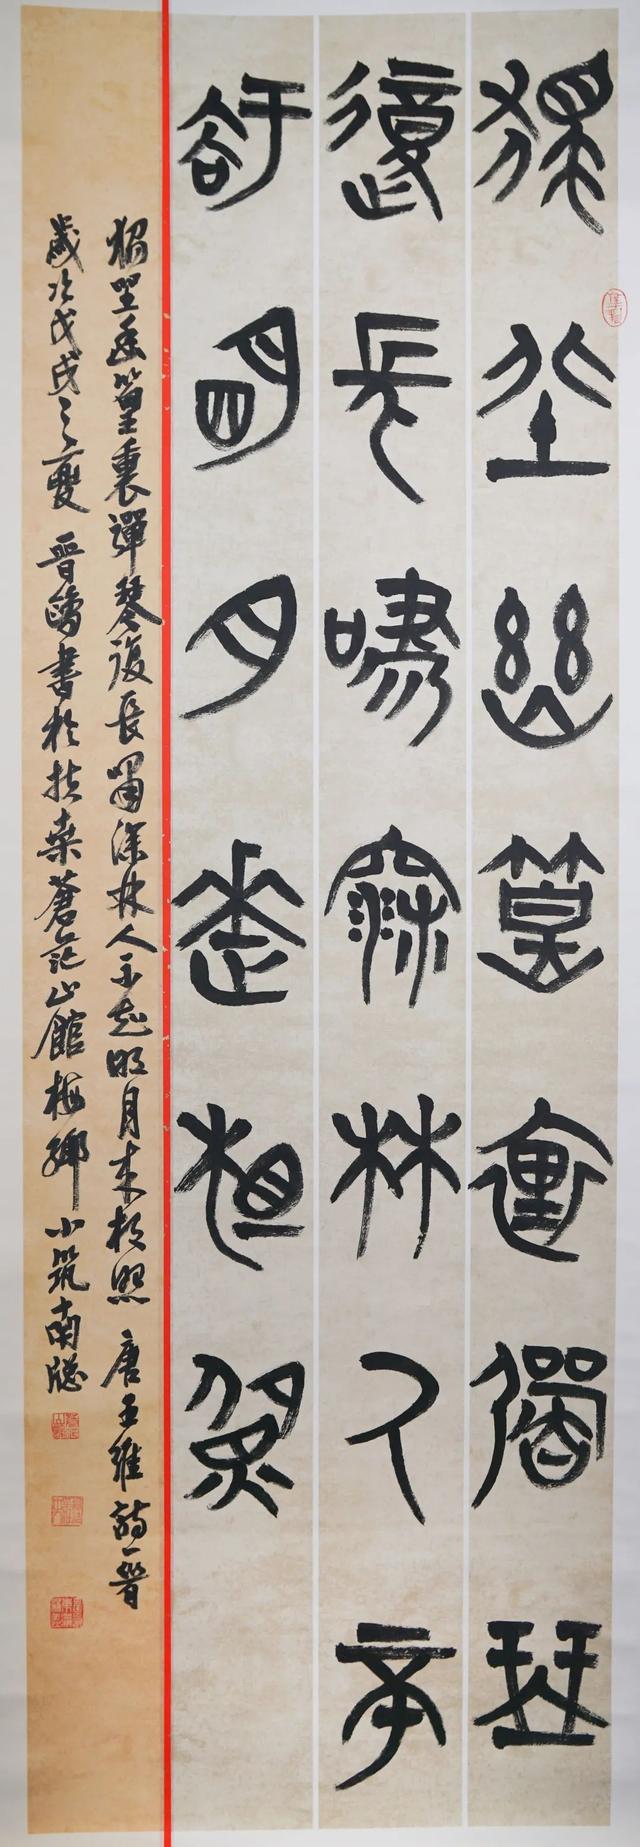 獨坐幽篁裏彈琴
復長嘯深林人不
知明月來相照
獨坐幽篁裏彈琴復長嘯深林人不知明月來相照 唐王維詩一首
歲次戊戌之夏 晉鷗書於扶桑蒼茫山館梅鄉小筑南窓